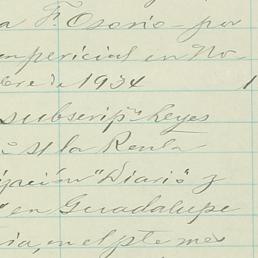 a F. Osorio - por
mpericias en No
bre de 1934 1
subscripn. Reyes
st la Renta
ación "Diario" y
" en Guadalupe
ia, en el pte mes